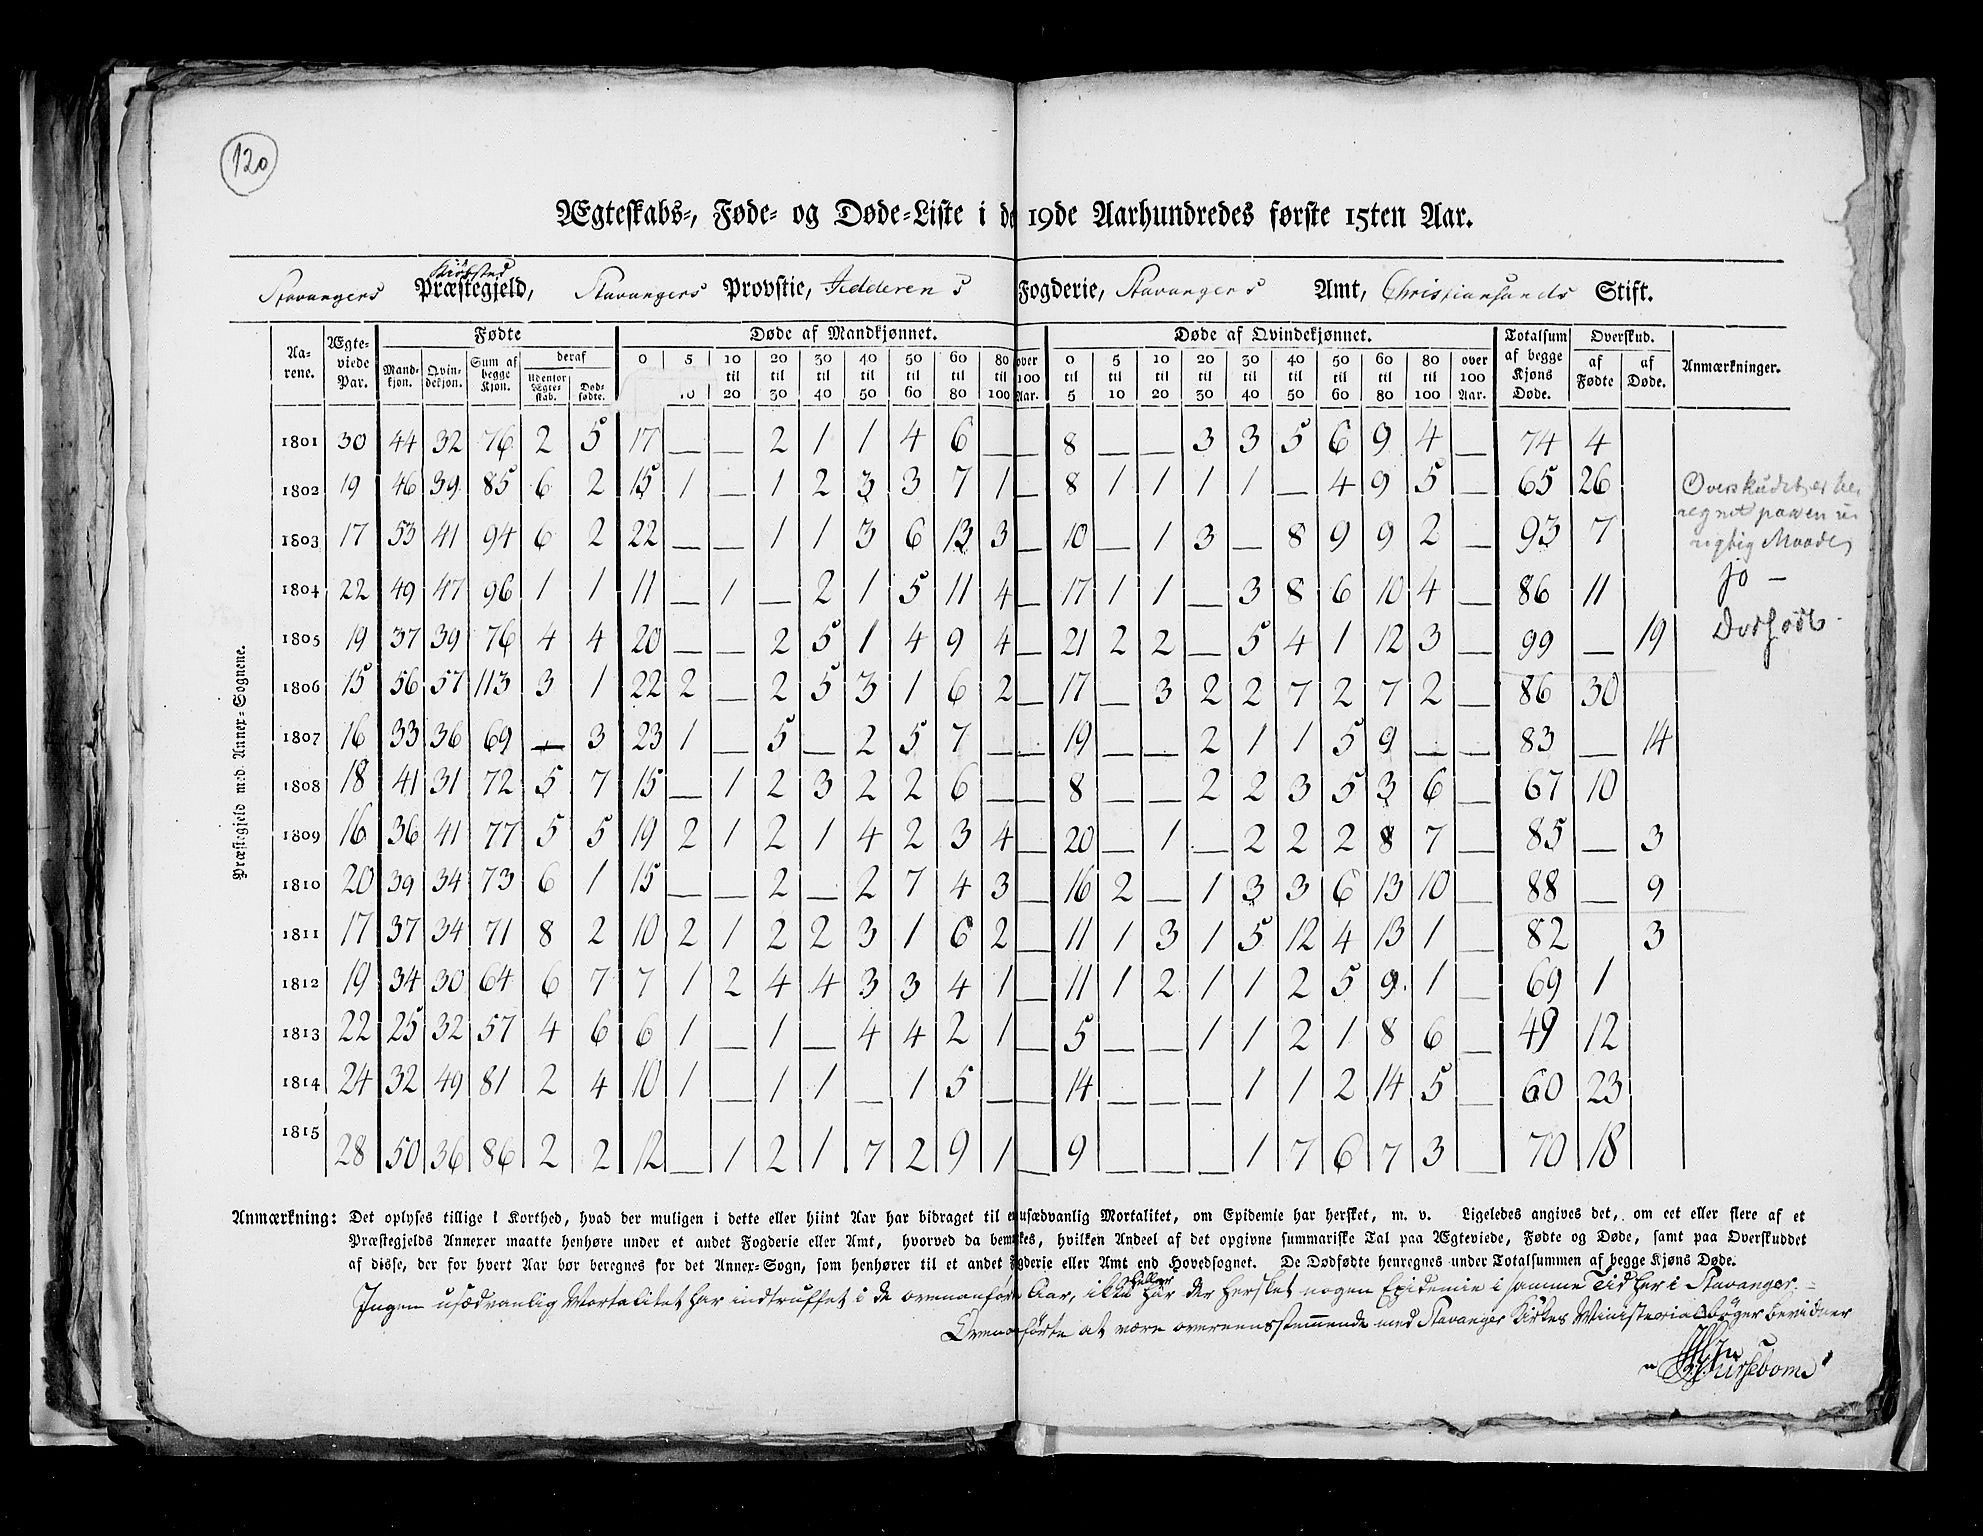 120
Ægteskabs-, Føde- og Døde-Liste i de 19de Aarhundredes første 15ten Aar.
Kiøbsted
Stavangers Præstegjeld, Stavangers Provstie, Jedderens Fogderie, Stavangers Amt, Christiansands Stift.
Aa-rene. Ægte-viede Par. Fødte Døde af Mandkjønnet. Døde af Qvindekjønnet. Totalsum af begge Kjøns Døde. Overskud. Anmærkninger.
Mand-kjøn. Qvin-dekjøn. Sum af begge Kjøn. deraf Udenfor Ægte-skab. Død-fødte. 0 5 10 10 til 20 20 til 30 30 til 40 40 til 50 50 til 60 60 til 80 80 til 100 over 100 Aar. 0 til 5 5 til 10 10 til 20 20 til 30 30 til 40 40 til 50 50 til 60 60 til 80 80 til 100 over 100 Aar. af Fødte af Døde.
Præstegjeld med Annex-Sognene.
1801 30 44 32 76 2 5 17 — — 2 1 1 4 6 — — 8 — — 3 3 5 6 9 4 — 74 4
1802 19 46 39 85 6 2 15 1 — 1 2 3 3 7 1 — 8 1 1 1 1 — 4 9 5 — 65 26
1803 17 53 41 94 6 2 22 — — 1 1 3 6 13 3 — 10 — 1 3 — 8 9 9 2 — 93 7
1804 22 49 47 96 1 1 11 — 1 — 2 1 5 11 4 — 17 1 1 — 3 8 6 10 4 — 86 11
1805 19 37 39 76 4 4 20 — — 2 5 1 4 9 4 — 21 2 2 — 5 4 1 12 3 — 99 — 19
1806 15 56 57 113 3 1 22 2 — 2 5 3 1 6 2 — 17 — 3 2 2 7 2 7 2 — 86 30
1807 16 33 36 69 — 3 23 1 — 5 — 2 5 7 — — 19 — — 2 1 1 5 9 — — 83 — 14
1808 18 41 31 72 5 7 15 — 1 2 3 2 2 6 — — 8 — — 2 2 3 5 3 6 — 67 10
1809 16 36 41 77 5 5 19 2 1 2 1 4 2 3 4 — 20 — 1 — 2 2 2 8 7 — 85 — 3
1810 20 39 34 73 6 1 15 — — 2 — 2 7 4 3 — 16 2 — 1 3 3 6 13 10 — 88 — 9
1811 17 37 34 71 8 2 10 2 1 2 2 3 1 6 2 — 11 1 3 1 5 12 4 13 1 — 82 3
1812 19 34 30 64 6 7 7 1 2 4 4 3 3 4 1 — 11 1 2 1 1 2 5 9 1 — 69 1
1813 22 25 32 57 4 6 6 1 — 1 — 4 4 2 1 — 5 — — 1 1 2 1 8 6 — 49 12
1814 24 32 49 81 2 4 10 1 — 1 1 — 1 5 — — 14 — — — 1 1 2 14 5 — 60 23
1815 28 50 36 86 2 2 12 — 1 2 1 7 2 9 1 — 9 — — — 1 7 6 7 3 — 70 18
Overskudet er be-
regnet paa en u-
rigtig Maade
jo —
Dødfødt
Anmærkning: Det oplyses tillige i Korthed, hvad der muligen i dette eller hiint Aar har bidraget til en usædvanlig Mortalitet, om Epidemie har hersket, m. v. Ligeledes angives det, om eet eller flere af et
Præstegjelds Annexer maatte henhøre under et andet Fogderie eller Amt, hvorved da bemærkes, hvilken Andeel af det opgivne summariske Tal paa Ægteviede, Fødte og Døde, samt paa Overskuddet
af disse, der for hvert Aar bør beregnes for det Annex-Sogn, som henhører til et andet Fogderie eller Amt end Hovedsognet. De Dødfødte henregnes under Totalsummen af begge Kjøns Døde.
Ingen usædvanlig Mortalitet har indtruffet i de ovenanførte Aar, ikke heller har der hersket nogen Epidemie i samme Tid her i Stavanger.
Ovenanførte at være overeensstemmende med Stavanger Kirkes Ministerialbøger bevidner